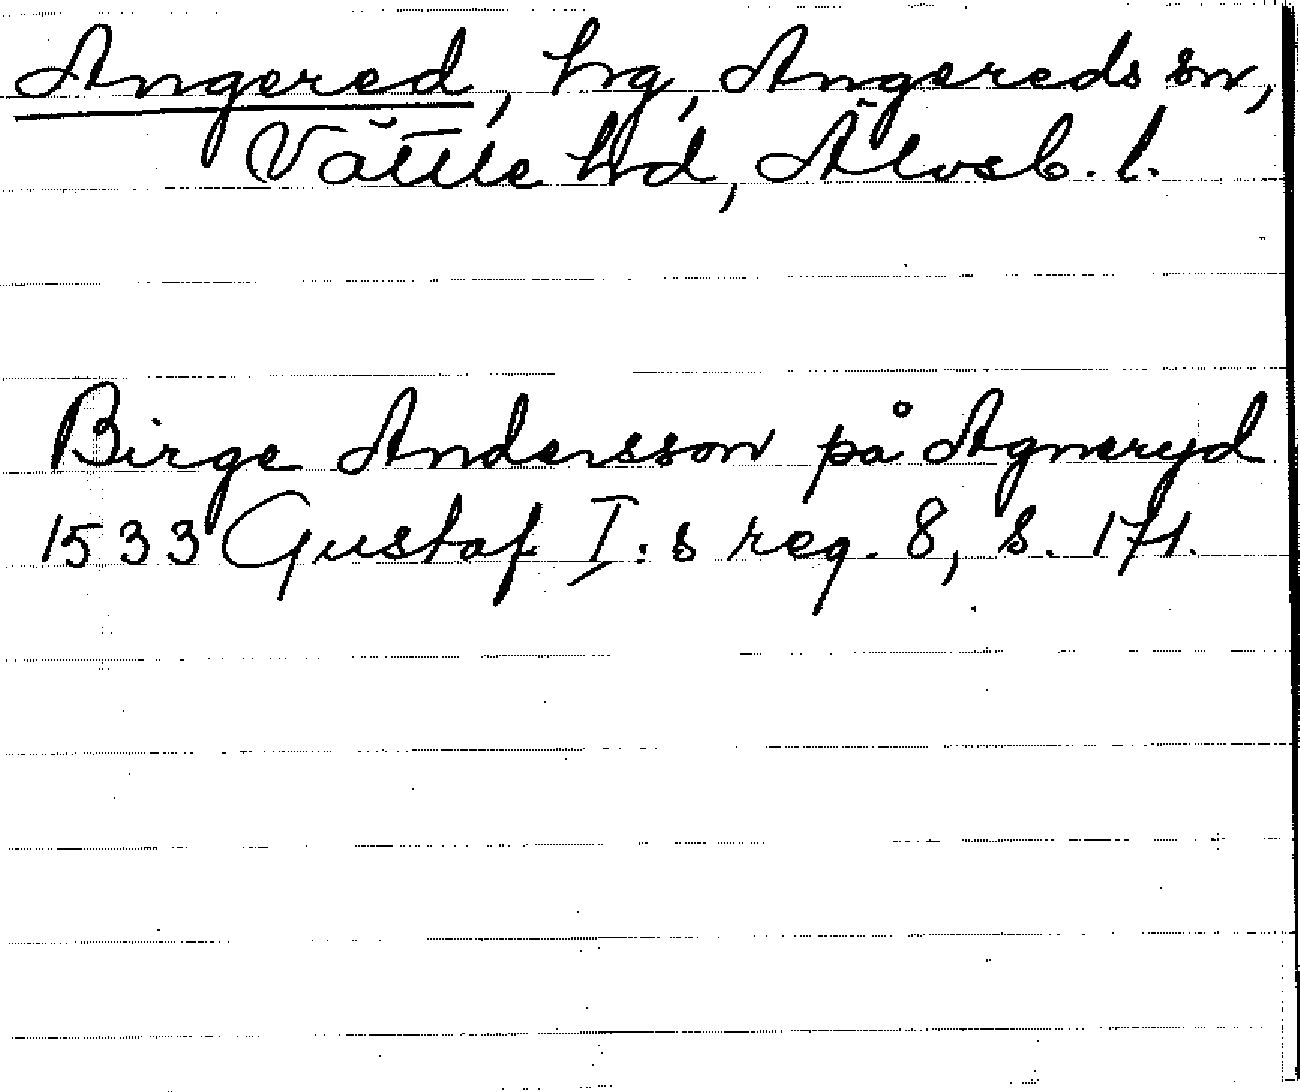 Angered, hg, Angereds sn,
Vättle hd, Älvsb. l.
Birge Andersson på Agneryd
1533 Gustaf I:s reg. 8, s. 171.